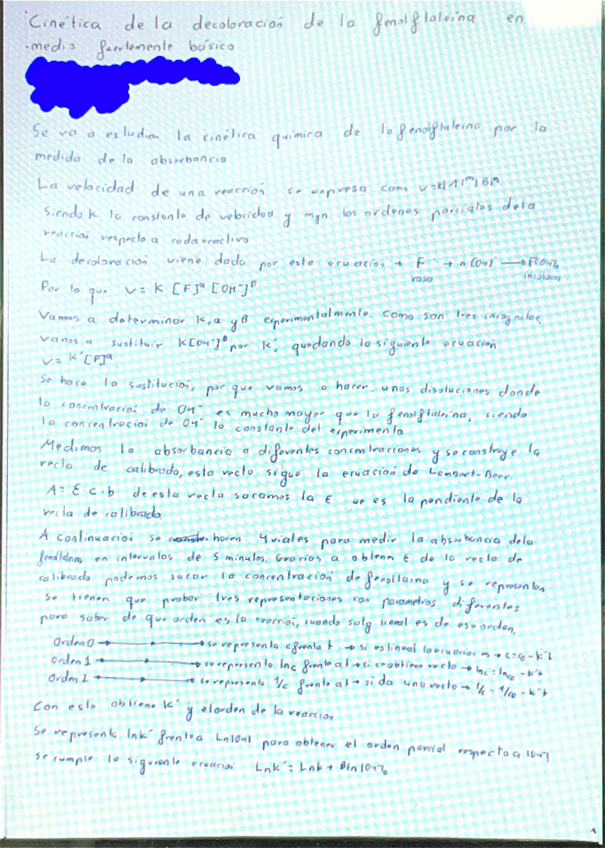 Cinética de la decoloración de la fenolftaleína en
medio fuertemente básico
Se va a estudiar la cinética química de la fenolftaleina por la
medida de la absorbancia
La velocidad de una reacción se expresa como v=k|A|ᵐ|B|ⁿ
Siendo k la constante de velocidad y m y n los ordenes parciales de la
reacción respecto a cada reactivo
La decoloración viene dada por esta ecuación → F⁻ + n(OH)⁻ → F(OH)ₙ
rosa incoloro
Por lo que V = k [F]ᵃ [OH⁻]ᵝ
Vamos a determinar k, a y β experimentalmente como son tres incognitas,
vamos a sustituir k[OH⁻]ᵝ por k', quedando la siguiente ecuación
V = k'[F]ᵃ
Se hace la sustitución, por que vamos a hacer unas disoluciones donde
la concentración de OH⁻ es mucho mayor que la fenolftaleína, siendo
la concentración de OH⁻ la constante del experimento
Medimos la absorbancia a diferentes concentraciones y se construye la
recta de calibrado, esta recta sigue la ecuación de Lambert-Beer.
A = ε c · b de esta recta sacamos la ε ue es la pendiente de la
recta de calibrado.
A continuación se hacen 4 viales para medir la absorbancia de la
en intervalos de 5 minutos. Gracias a obtener ε de la recta de
calibrado podemos sacar la concentración de y se representan
Se tienen que probar tres representaciones con parametros diferentes
para saber de que orden es la reacción, cuando salg lineal es de ese orden.
Orden 0 → se representa c frente t → si es lineal la ecuacion es → c=c₀-k't
Orden 1 → se representa lnc frente a t → si se obtiene recta → lnc = lnc₀ - k't
Orden 2 → se representa 1/c frente a t → si da una recta → 1/c = 1/c₀ - k't
Con esto obtiene k' y el orden de la reacción
Se representa lnk' frente a Ln|OH| para obtener el orden parcial respecto a |OH|
se cumple la siguiente ecuación Lnk' = Lnk + βln|OH|₀